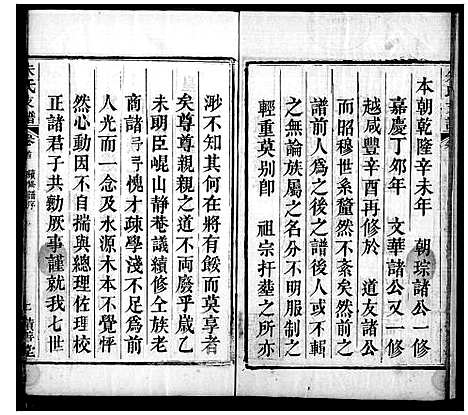 本朝乾隆辛未年　朝琮諸公一修
嘉慶丁卯年　文華諸公又一修
越咸豐辛酉再修於　道友諸公
譜前人爲之後之譜前人或不輯
之四百世系釐然不紊矣然前之
之無論族屬之名分不明服制之
輕重莫别卽　祖宗扦塟之所亦
渺不知其何在將有餒而莫享者
矣尊尊親親之道不両廢乎歲乙
未明臣崐山靜巷議續修仝族老
商諸丂丂槐才疎學淺不足爲前
人光而一念及水源木本不覺怦
然心動因不自揣與總理佐理校
正諸君子共勷厥事謹就我七世
朱氏支譜
卷首
續修譜序